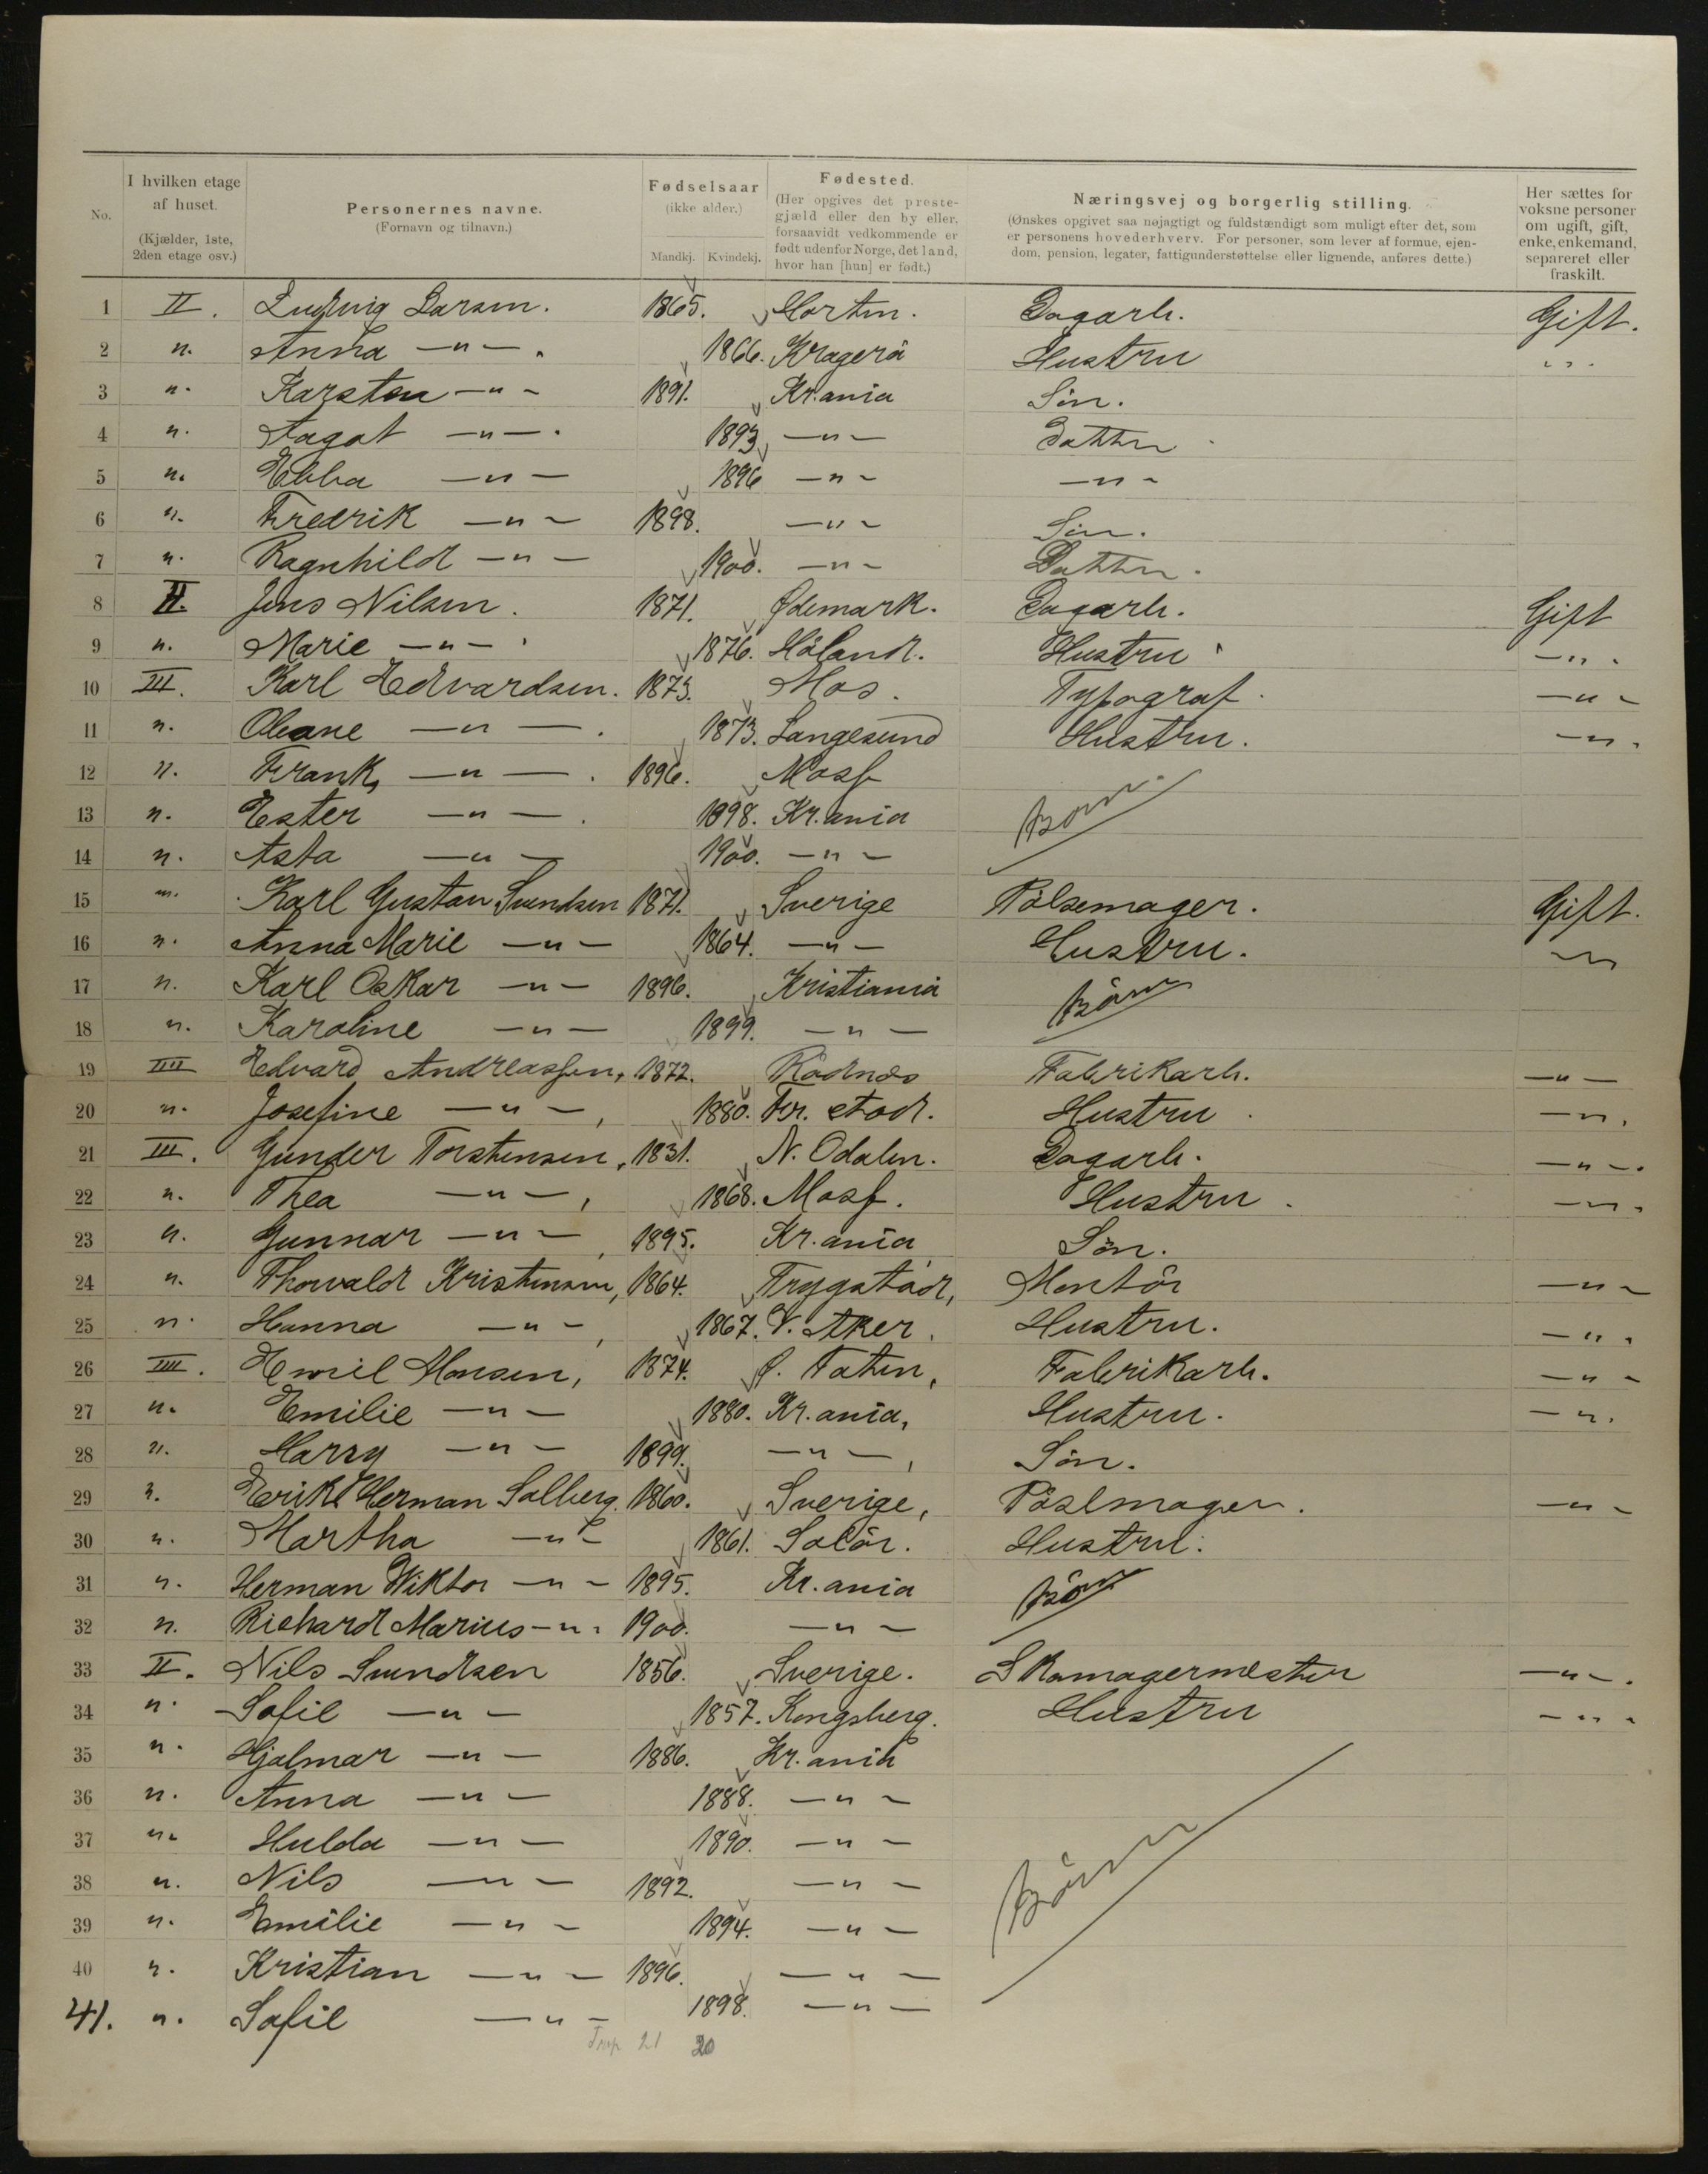 No.
I hvilken etage
af huset.
(Kjælder, 1ste,
2den etage osv.)
Personernes navne.
(Fornavn og tilnavn.)
Fødselsaar
(ikke alder.)
Mandkj. Kvindekj.
Fødested.
(Her opgives det preste-
gjæld eller den by eller,
forsaavidt vedkommende er
født udenfor Norge, det land,
hvor han [hun] er født.)
Næringsvej og borgerlig stilling.
(Ønskes opgivet saa nøjagtigt og fuldstændigt som muligt efter det, som
er personens hovederhverv. For personer, som lever af formue, ejen-
dom, pension, legater, fattigunderstøttelse eller lignende, anføres dette.)
Her sættes for
voksne personer
om ugift, gift,
enke, enkemand,
separeret eller
fraskilt.
1 II. Ludvig Larsen. 1865. Horten. Dagarb. Gift.
2 n. Anna —"—. 1866. Kragerö Hustru "
3 n. Karsten —"— 1891. Kr.ania Sön.
4 n. Aagot —"—. 1893 —"— Datter
5 n. Ebba —"— 1896 —"— —"—
6 n. Fredrik —"— 1898. —"— Sön.
7 n. Ragnhild —"— 1900. —"— Datter.
8 II. Jens Nilsen. 1871. Ødemark. Dagarb. Gift
9 n. Marie —"— 1876. Höland. Hustru —"—.
10 III. Karl Edvardsen. 1873. Mos. Typograf. —"—
11 n. Oleane —"—. 1873. Langesund Hustru. —"—.
12 n. Frank, —"—. 1896. Moss
13 n. Ester —"—. 1898. Kr.ania Börn.
14 n. Asta —"— 1900. —"—
15 "". Karl Gustav Svendsen 1871. Sverige Pölsemager. Gift.
16 n. Anna Marie —"— 1864. —"— Hustru. —"—
17 n. Karl Oskar —"— 1896. Kristiania Börn
18 n. Karoline —"— 1899. —"—
19 IIII Edvard Andreassen, 1872. Rödnæs Fabrikarb. —"—
20 n. Josefine —"—, 1880. Fr. stad. Hustru. —"—.
21 III. Gunder Torstensen, 1831. N. Odalen. Dagarb. —"—.
22 n. Thea —"—, 1868. Moss. Hustru. —"—.
23 n. Gunnar —"—, 1895. Kr.ania Sön.
24 n. Thorvald Kristensen, 1864. Trygstad, Montör —"—
25 n. Hanna —"—, 1867. V. Aker. Hustru. —"—.
26 IIII. Emil Monsen, 1874. Ø. Toten, Fabrikarb. —"—
27 n. Emilie —"— 1880. Kr.ania, Hustru. —"—.
28 n. Harry —"— 1899. —"—, Sön.
29 n. Erik Herman Solberg. 1860. Sverige, Pöslmager. —"—
30 n. Martha —"— 1861. Solör. Hustru.
31 n. Herman Wiktor —"— 1895. Kr.ania Börn
32 n. Richard Marius —"— 1900. —"—
33 II. Nils Svendsen 1856. Sverige. Skomagermester —"—.
34 n. Sofie —"— 1857. Kongsberg. Hustru —"—.
35 n. Hjalmar —"— 1886. Kr.ania
36 n. Anna —"— 1888. —"—
37 n. Hulda —"— 1890. —"—
38 n. Nils —"— 1892. —"— Börn
39 n. Emilie —"— 1894. —"—
40 n. Kristian —"— 1896. —"—
41. n. Sofie —"— 1898. —"—
21 20